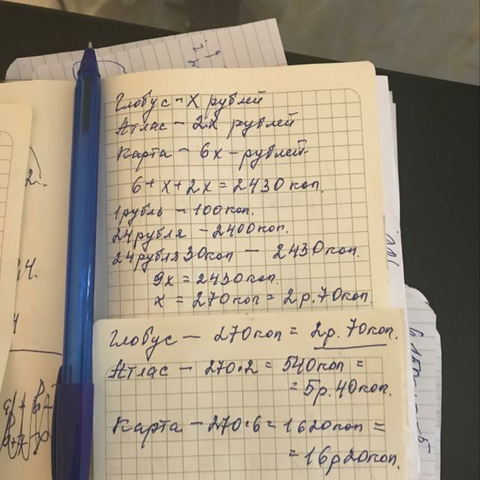 Глобус - х рублей
Атлас - 2х рублей
Карта - 6х - рублей
6+х+2х = 2430 коп.
1 рубль - 100 коп.
24 рубля - 2400 коп.
24 рубля 30 коп - 2430 коп.
9х = 2430 коп.
х = 270 коп = 2 р. 70 коп.
Глобус - 270 коп = 2 р. 70 коп.
Атлас - 270·2 = 540 коп =
= 5 р. 40 коп.
Карта - 270·6 = 1620 коп =
= 16 р 20 коп.